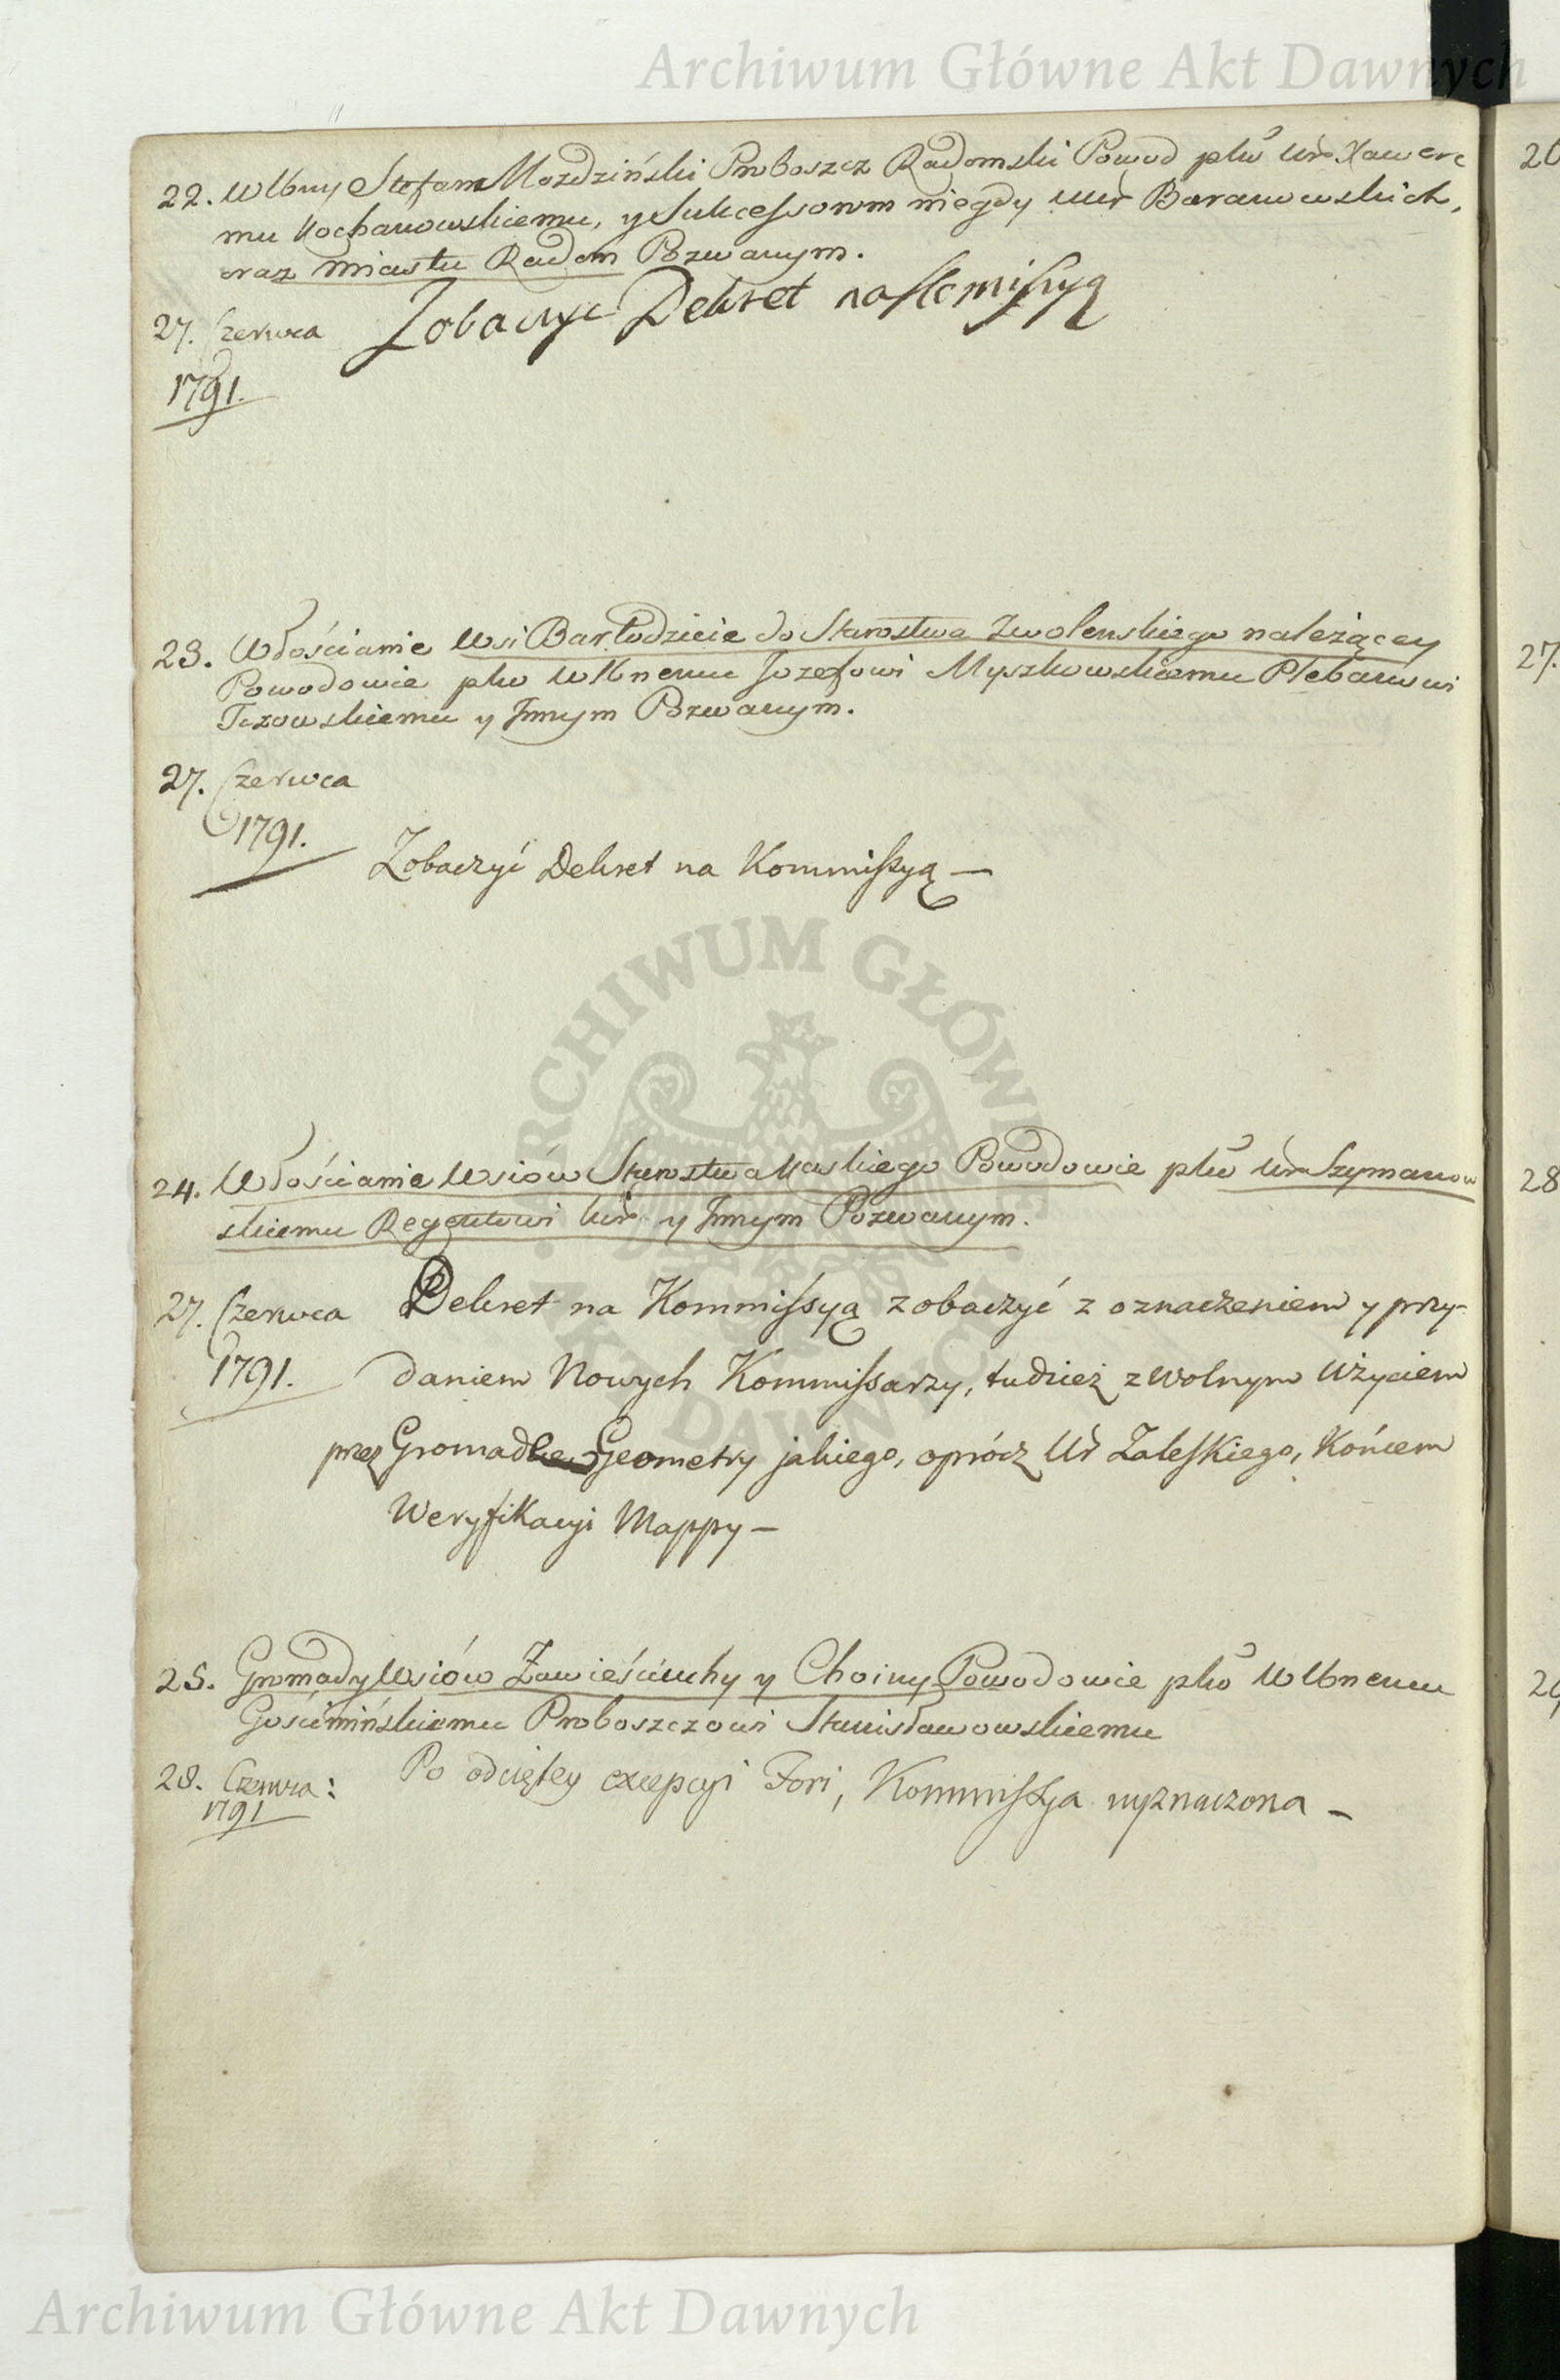 Archiwum Główne Akt Dawnych
22. Wlbny Stefan Mozdziński Proboszcz Radomski Powod plwo Ur Xawere
mu Kochanowskiemu, y Sukcessorom niegdy Urr Baranowskich,
oraz Miastu Radom Pozwanym.
27. Czerwca Zobaczyc Dekret na Komissyą
1791.
23. Włościanie wsi Bartodzieie do Starostwa Zwolenskiego należącey
Powodowie plwo Wlbnemu Jozefowi Myszkowskiemu Plebanowi
Tczowskiemu y Innym Pozwanym.
27. Czerwca
1791.
Zobaczyć Dekret na Kommissyą —
24. Włościanie Wsiów Starostwa Powodowie plwo Ur Szymanow
skiemu Regentowi y Innym Pozwanym.
27. Czerwca Dekret na Kommissyą zobaczyć z oznaczeniem y przy-
1791. daniem Nowych Kommissarzy, tudzież z wolnym Użyciem
przez Gromadke Geometry jakiego, oprócz Ur Zaleskiego, Końcem
Weryfikacyi Mappy —
25. Gromady Wsiów Zawieściuchy y Choiny Powodowie plwo Wlbnemu
Gościmińskiemu Proboszczowi Stanisławowskiemu
28. Czerwca: Po odciętey excepcyi Fori, Kommissya wyznaczona —
1791
ARCHIWUM GŁÓWNE
AKT DAWNYCH
Archiwum Główne Akt Dawnych
26
27.
28